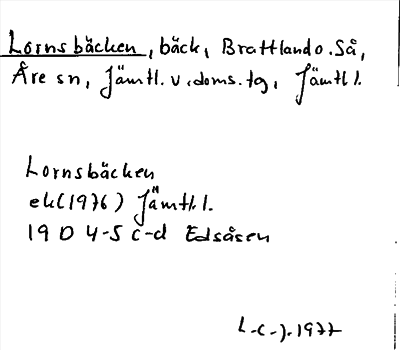 Lornsbäcken, bäck, Brattland o. Så,
Åre sn, Jämtl. v. doms. tg, Jämtl l.
Lornsbäcken
ek (1976) Jämtl. l.
19 D 4-5 c-d Edsåsen
L-C-J. 1977